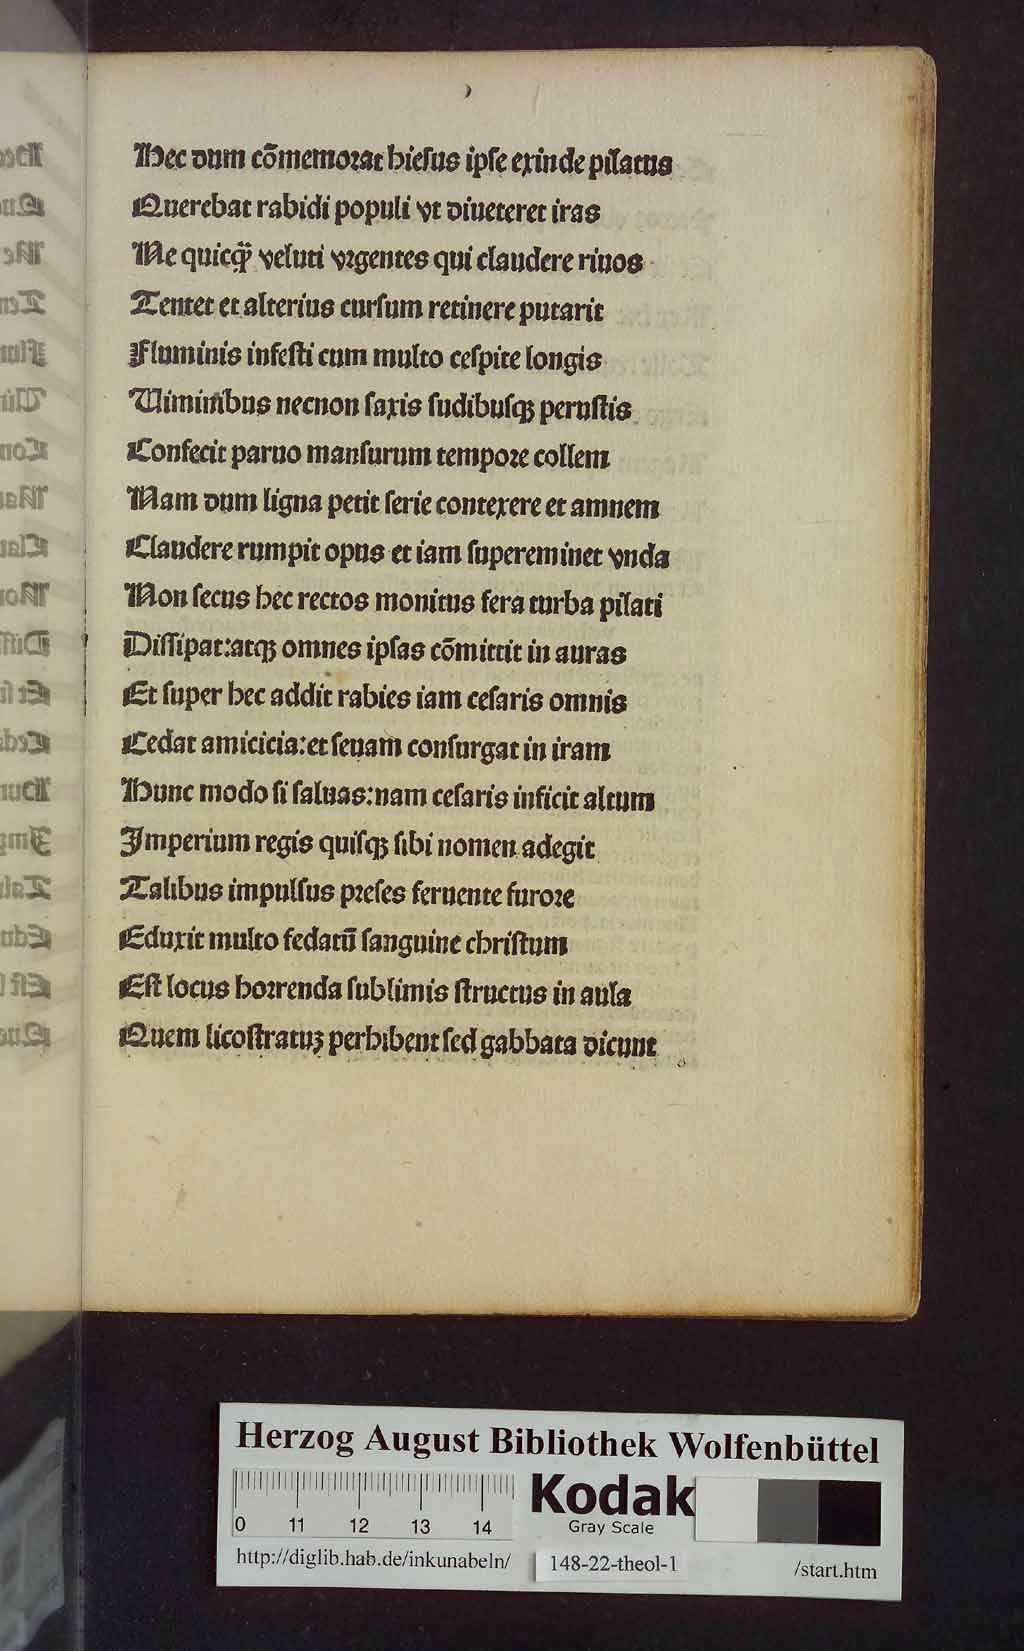 Hec dum cōmemorat hieſus ipſe exinde pilatus
Querebat rabidi populi vt diueteret iras
Ne quicq̃ veluti vrgentes qui claudere riuos
Tentet et alterius curſum retinere putarit
Fluminis infeſti cum multo ceſpite longis
Viminibus necnon ſaxis ſudibuſqꝫ peruſtis
Confecit paruo manſurum tempore collem
Nam dum ligna petit ſerie contexere et amnem
Claudere rumpit opus et iam ſupereminet vnda
Non ſecus hec rectos monitus fera turba pilati
Diſſipat:atqꝫ omnes ipſas cōmittit in auras
Et ſuper hec addit rabies iam ceſaris omnis
Cedat amicicia:et ſeuam conſurgat in iram
Hunc modo ſi ſaluas:nam ceſaris inficit altum
Imperium regis quiſqꝫ ſibi nomen adegit
Talibus impulſus preſes feruente furore
Eduxit multo fedatū ſanguine chriſtum
Eſt locus horrenda ſublimis ſtructus in aula
Quem licoſtratuꝫ perhibent ſed gabbata dicunt
Herzog August Bibliothek Wolfenbüttel
0 11 12 13 14
Kodak
Gray Scale
http://diglib.hab.de/inkunabeln/ 148-22-theol-1 /start.htm